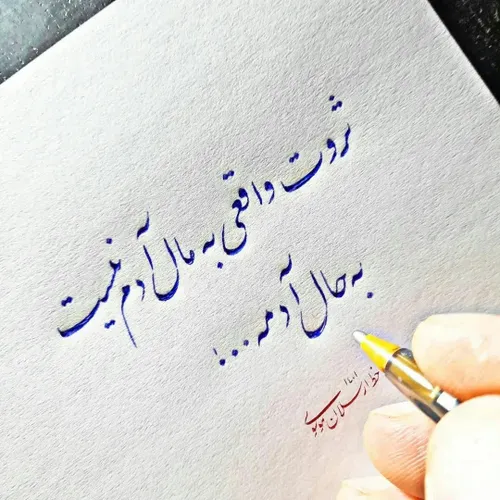 ثروت واقعی به مال آدم نیست
به حال آدمه...!
خط ارسلان موسوی